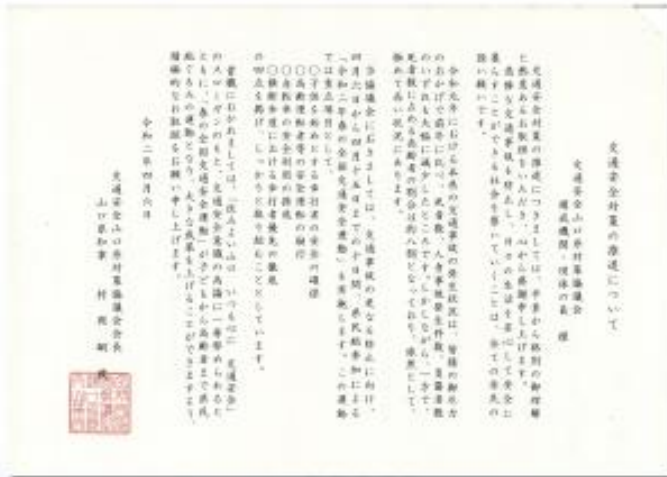 交通安全対策の推進について
交通安全山口県対策協議会
構成機関・団体の長 様
交通安全対策の推進につきましては、平素から格別の御理解
と熱意ある お取組をいただき、心から感謝申し上げます。
悲惨な交通事故を防止し、日々の生活を安心して安全に
暮らすことができる社会を築いていくことは、全ての県民の
願いです。
令和元年における本県の交通事故の発生状況は、皆様の御尽力
のおかげで前年に比べ、死者数、人身事故発生件数、負傷者数
のいずれも大幅に減少したところです。しかしながら、一方で、
死者数に占める高齢者の割合は約八割となっており、依然として、
極めて高い状況にあります。
当協議会におきましては、交通事故の更なる防止に向け、
四月六日から四月十五日までの十日間、県民総参加による
「令和二年春の全国交通安全運動」を実施します。この運動
では重点項目として、
○子供を始めとする歩行者の安全の確保
○高齢運転者等の安全運転の励行
○自転車の安全利用の推進
○横断歩道における歩行者優先の徹底
の四点を掲げ、しっかりと取り組むこととしています。
皆様におかれましては、「住みよい山口 いつも心に 交通安全」
のスローガンのもと、交通安全意識の高揚に一層努められると
ともに、「春の全国交通安全運動」が子どもから高齢者まで県民
総ぐるみの運動となり、大きな成果を上げることができますよう、
積極的なお取組をお願い申し上げます。
令和二年四月六日
交通安全山口県対策協議会会長
山口県知事 村岡嗣政